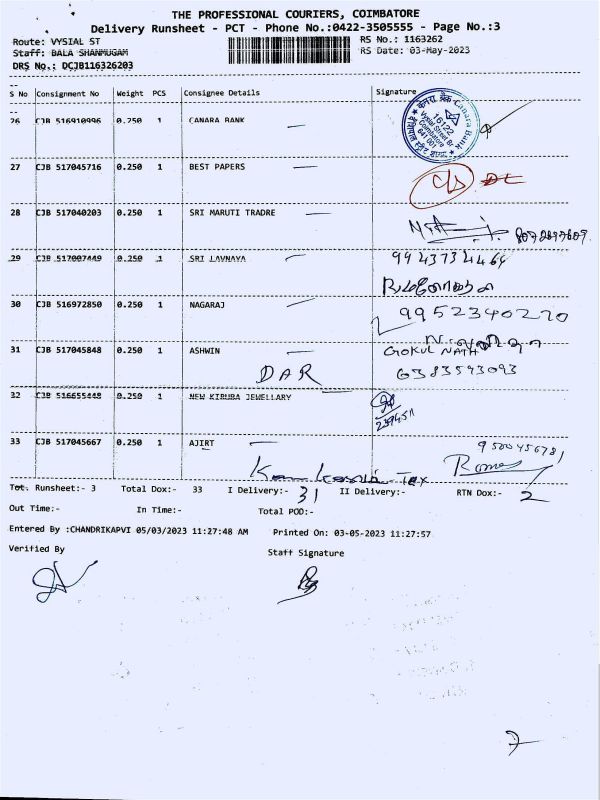 THE PROFESSIONAL COURIERS, COIMBATORE
Delivery Runsheet - PCT - Phone No.:0422-3505555 - Page No.:3
Route: VYSIAL ST
Staff: BALA SHANMUGAM
DRS No.: DCJB116326203
RS No.: I163262
RS Date: 03-May-2023
S No Consignment No Weight PCS Consignee Details Signature
26 CJB 516910996 0.250 1 CANARA BANK
Canara Bank
16122
Vysial Street Br
Coimbatore
641 001
27 CJB 517045716 0.250 1 BEST PAPERS
28 CJB 517040203 0.250 1 SRI MARUTI TRADRE
29 CJB 517007449 0.250 1 SRI LAVNAYA
9943734464
30 CJB 516972850 0.250 1 NAGARAJ
9952340270
31 CJB 517045848 0.250 1 ASHWIN
GOKUL NATH
DAR 6383593093
32 CJB 516655448 0.250 1 NEW KIRUBA JEWELLARY
33 CJB 517045667 0.250 1 AJIRT
9500456781
Tot. Runsheet:- 3 Total Dox:- 33 I Delivery:- 31 II Delivery:- RTN Dox:- 2
Out Time:- In Time:- Total POD:-
Entered By :CHANDRIKAPVI 05/03/2023 11:27:48 AM Printed On: 03-05-2023 11:27:57
Verified By Staff Signature